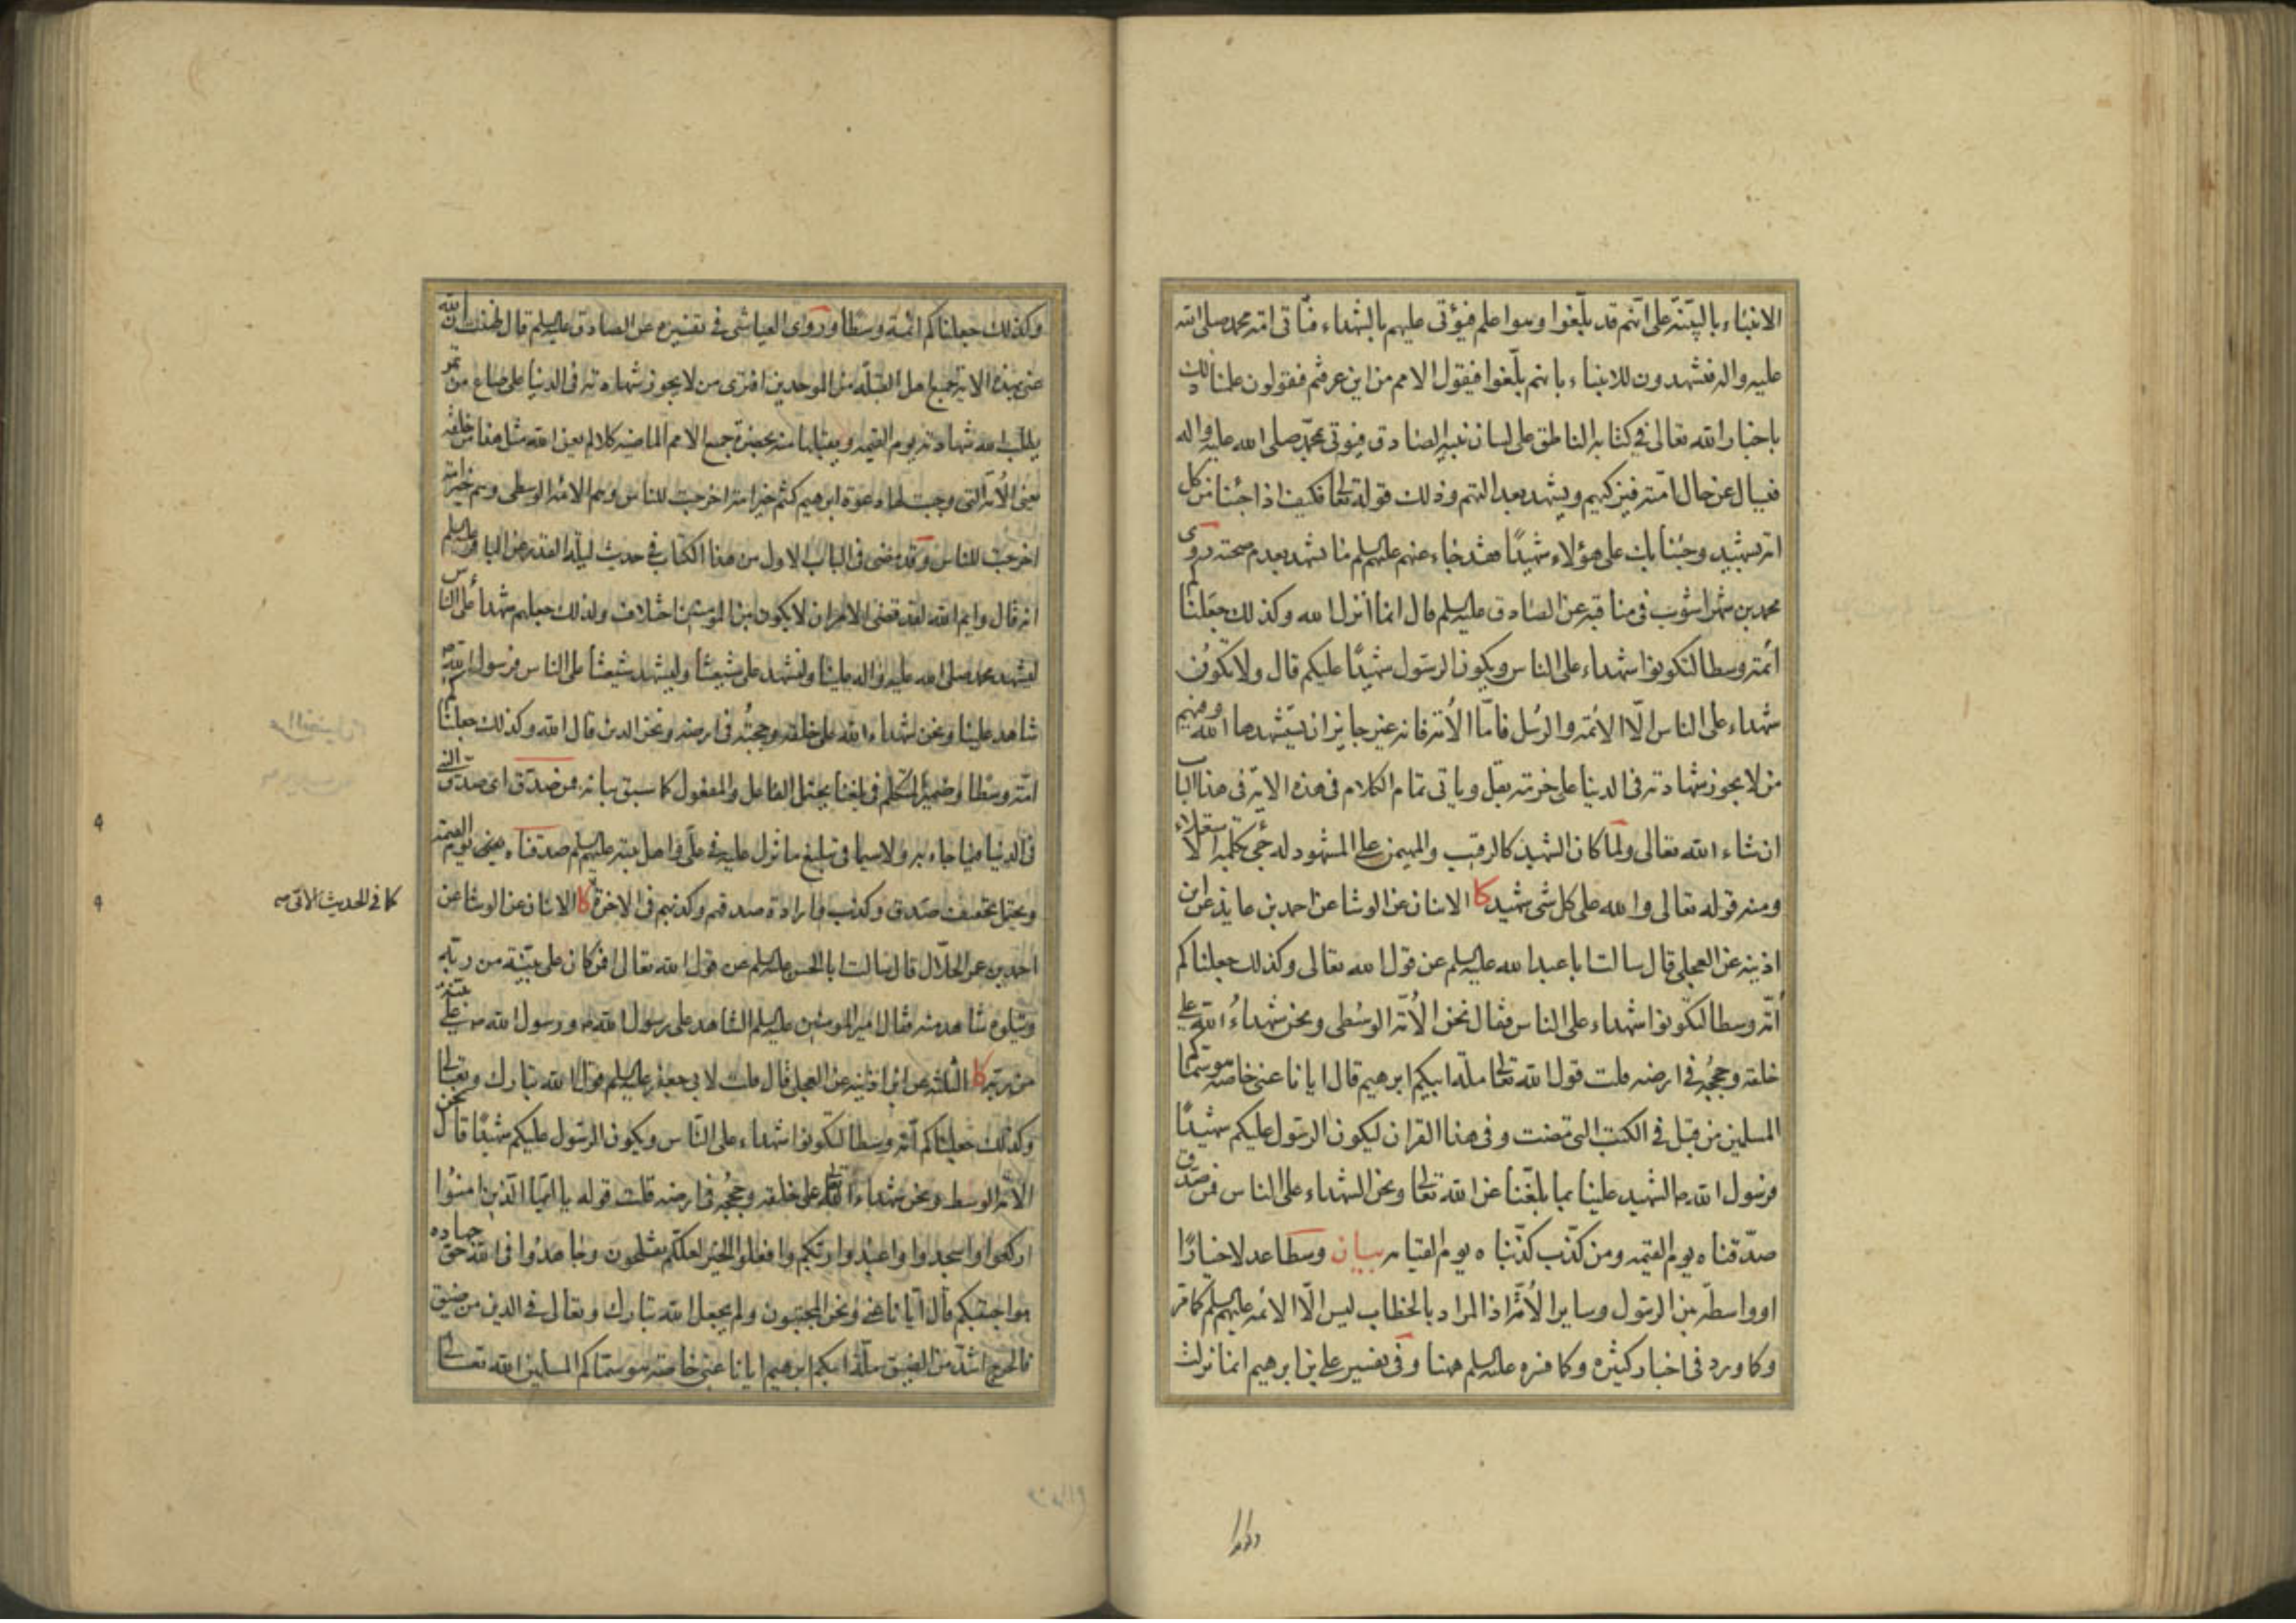 الانبياء بالبينة على انهم قد بلغوا وهوا علم فيؤتى عليهم بالشهداء فتأتى امة محمد صلى الله
عليه واله فتشهدون للانبياء بانهم بلغوا فيقول الامم من اين عرفتم فيقولون علمنا ذلك
باخبار الله تعالى في كتابه الناطق على لسان نبيه الصادق فيؤتى بمحمد صلى الله عليه واله
فيسال عن حال امته فيزكيهم ويشهد بعدالتهم وذلك قوله تعالى فكيف اذا جئنا من كل
امة بشهيد وجئنا بك على هؤلاء شهيدا فقد جاء عنهم عليهم السلم ما يشهد بعدم صحته روى
محمد بن شهراشوب في مناقبه عن الصادق عليه السلم قال انما انزل الله وكذلك جعلناكم
ائمة وسطا لتكونوا شهداء على الناس ويكون الرسول شهيدا عليكم قال ولا تكون
شهداء على الناس الا الائمة والرسل فاما الامة فانه غير جايز ان يستشهدها الله وفيهم
من لا يجوز شهادته في الدنيا على حزمة بقل وياتى تمام الكلام في هذه الاية في هذا الباب
ان شاء الله تعالى ولما كان الشهيد كالرقيب والمهيمن على المشهود له جىء بكلمة الاستعلاء
ومنه قوله تعالى والله على كل شى شهيد كا الاثنان عن الوشا عن احمد بن عايذ عن ابن
اذينه عن العجلى قال سالت ابا عبدالله عليه السلم عن قول الله تعالى وكذلك جعلناكم
امة وسطا لتكونوا شهداء على الناس فقال نحن الامة الوسطى ونحن شهداء الله على
خلقه وحججه في ارضه قلت قول الله تعالى ملة ابيكم ابرهيم قال ايانا عنى خاصة هو سماكم
المسلمين من قبل في الكتب التى مضت وفى هذا القران ليكون الرسول عليكم شهيدا
فرسول الله ص الشهيد علينا بما بلغنا عن الله تعالى ونحن الشهداء على الناس فمن صدق
صدقناه يوم القيمه ومن كذب كذبناه يوم القيامه بيان وسطا عدلا خيارا
او واسطة بين الرسول وساير الامة اذ المراد بالخطاب ليس الا الائمة عليهم السلم كما مر
وكما ورد في اخبار كثيره وكما فسره عليه السلم هنا وفى تفسير على بن ابرهيم انما نزلت
وكذلك جعلناكم ائمة وسطا وروى العياشى في تفسيره عن الصادق عليه السلم قال ظننت ان الله
عنى بهذه الاية جميع اهل القبلة من الموحدين افترى من لا يجوز شهادته في الدنيا على صاع من تمر
يطلب الله شهادته يوم القيمه ويقبلها منه بحضرة جميع الامم الماضيه كلا لم يعن الله مثل هذا من خلقه
يعنى الامة التى وجبت لها دعوة ابرهيم كنتم خير امة اخرجت للناس وهم الامة الوسطى وهم خير امة
اخرجت للناس وقد مضى في الباب الاول من هذا الكتاب في حديث ليلة القدر عن الباقر عليه السلم
انه قال وايم الله لقد قضى الامر ان لا يكون بين المؤمنين اختلاف ولذلك جعلهم شهداء على الناس
ليشهد محمد صلى الله عليه واله علينا ولنشهد على شيعتنا وليشهد شيعتنا على الناس فرسول الله ص
شاهد علينا ونحن شهداء الله على خلقه وحجته في ارضه ونحن الذين قال الله وكذلك جعلناكم
امة وسطا وضمير المتكلم في بلغنا يحتمل الفاعل والمفعول كما سبق بيانه فمن صدق اى صدق النبى
في الدنيا فيما جاء به ولا سيما في تبليغ ما نزل عليه في على واهل بيته عليهم السلم صدقناه يعنى يوم القيمة
ويحتمل تخفيف صدق وكذب وارادة صدقهم وكذبهم في الاخرة كا الاثنان عن الوشا عن
احمد بن عمر الحلال قال سالت ابا الحسن عليه السلم عن قول الله تعالى افمن كان على بينة من ربه
ويتلوه شاهد منه فقال امير المومنين عليه السلم الشاهد على رسول الله ص ورسول الله ص على بينة
من ربه كا الثلثة عن ابن اذينه عن العجلى قال قلت لابى جعفر عليه السلم قول الله تبارك وتعالى
وكذلك جعلناكم امة وسطا لتكونوا شهداء على الناس ويكون الرسول عليكم شهيدا قال نحن
الامة الوسط ونحن شهداء الله تعالى على خلقه وحججه في ارضه قلت قوله يا ايها الذين امنوا
اركعوا واسجدوا واعبدوا ربكم وافعلوا الخير لعلكم تفلحون وجاهدوا في الله حق جهاده
هو اجتبيكم قال ايانا عنى ونحن المجتبون ولم يجعل الله تبارك وتعالى في الدين من ضيق
فالحرج اشد من الضيق ملة ابيكم ابرهيم ايانا عنى خاصة هو سماكم المسلمين الله تعالى
كما في الحديث الاتى